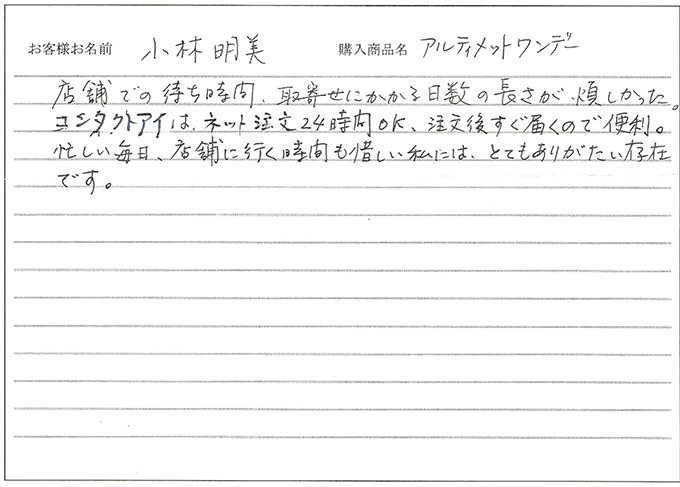 お客様お名前 小林明美 購入商品名 アルティメットワンデー
店舗での待ち時間、取寄せにかかる日数の長さが煩しかった。
コンタクトアイは、ネット注文24時間OK、注文後すぐ届くので便利。
忙しい毎日、店舗に行く時間も惜しい私には、とてもありがたい存在
です。